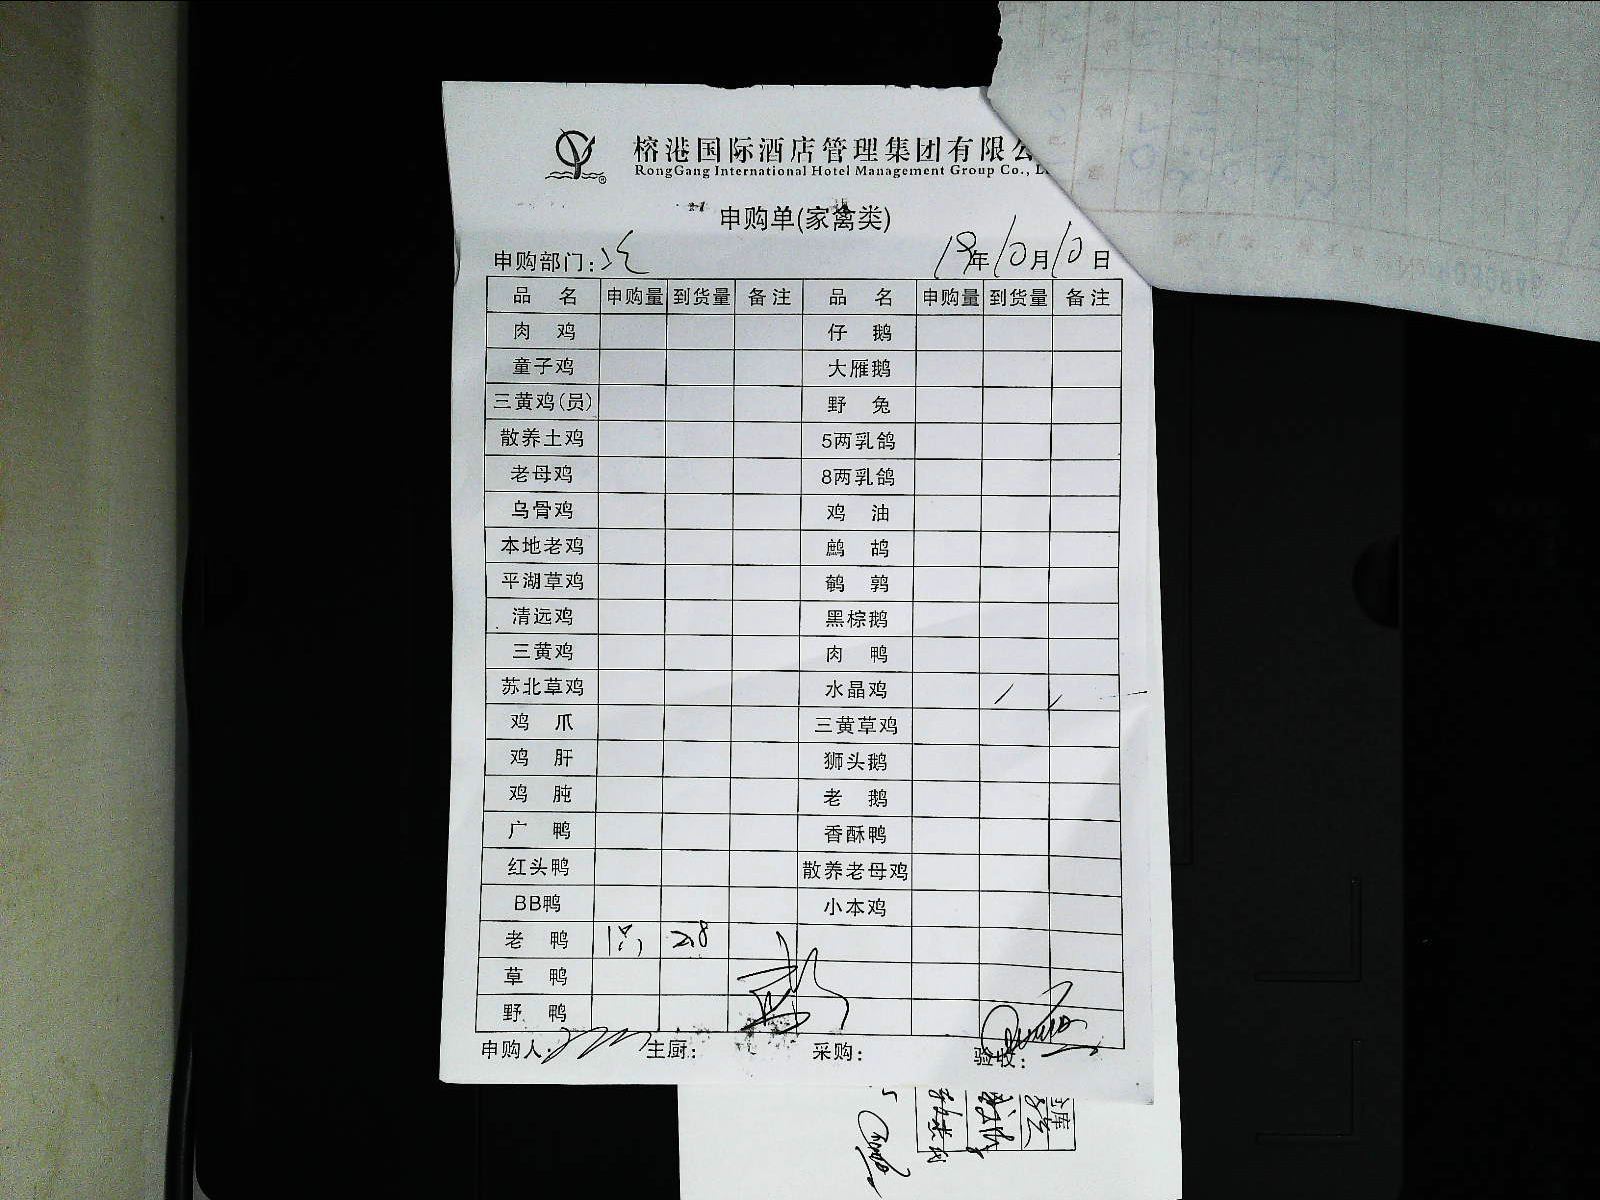 榕港国际酒店管理集团有限公
RongGang International Hotel Management Group Co., L
申购单(家禽类)
申购部门: 19年10月10日
品 名 申购量 到货量 备注 品 名 申购量 到货量 备注
肉 鸡 仔 鹅
童子鸡 大雁鹅
三黄鸡(员) 野 兔
散养土鸡 5两乳鸽
老母鸡 8两乳鸽
乌骨鸡 鸡 油
本地老鸡 鹧 鸪
平湖草鸡 鹌 鹑
清远鸡 黑棕鹅
三黄鸡 肉 鸭
苏北草鸡 水晶鸡
鸡 爪 三黄草鸡
鸡 肝 狮头鹅
鸡 肫 老 鹅
广 鸭 香酥鸭
红头鸭 散养老母鸡
BB鸭 小本鸡
老 鸭
草 鸭
野 鸭
申购人: 主厨: 采购: 验收: